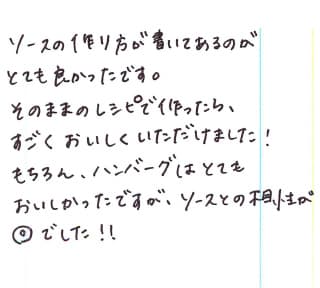 ソースの作り方が書いてあるのが
とても良かったです。
そのままのレシピで作ったら、
すごくおいしくいただけました!
もちろん、ハンバーグはとても
おいしかったですが、ソースとの相性が
◎でした!!